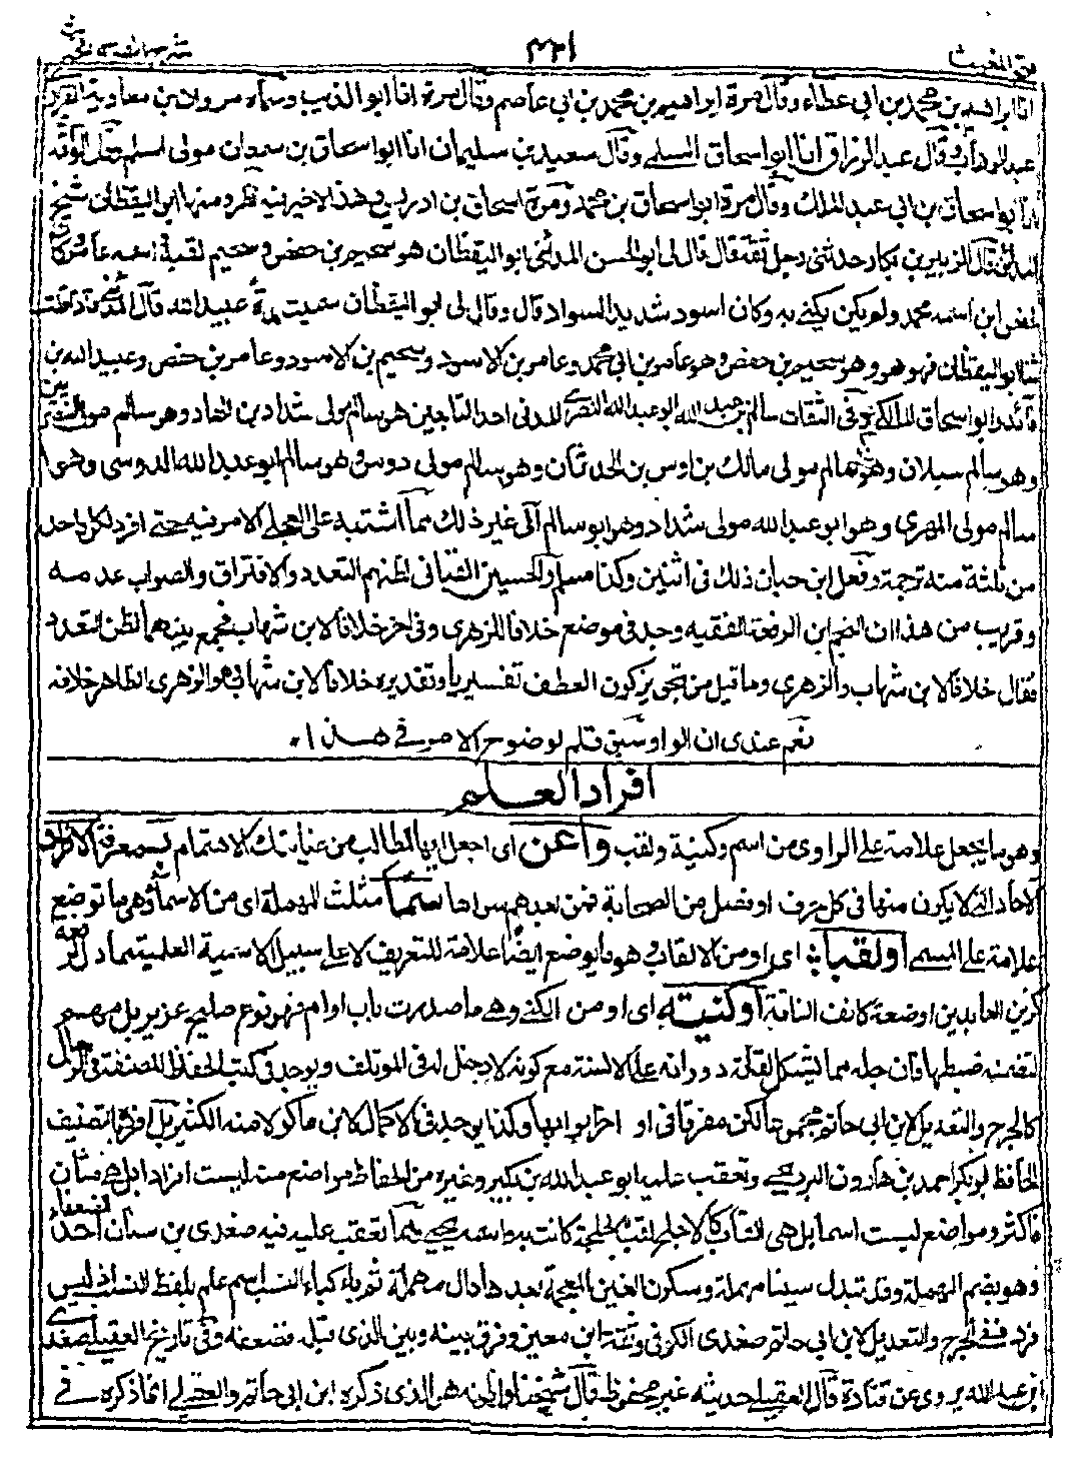 فتح المغيث
٤٢١
انا ابراهيم بن محمد بن ابى عطاء وقال مرة ابراهيم بن محمد بن ابى عاصم وقال مرة انا ابو الذيب وسماه مروان بن معاوية
عبد الوهاب وقال عبد الرزاق انا ابو اسحاق السلمے وقال سعيد بن سليمان انا ابو اسحاق بن سمعان مولى اسلم
انا ابو اسحاق بن ابى عبد الملك وقال مرة ابو اسحاق بن محمد ومرة اسحاق بن ادريس وهذا الاخير فيه نظر ومنها ابو اليقظان شيخ
قال الزبير بن بكار حدثنى رجل ثقة قال قال لى ابو الحسن المدائنى ابو اليقظان هو سحيم بن حفص وسحيم لقب اسمه عامر
ابن اسمه محمد ولم يكن يكنے به وكان اسود شديد السواد قال وقال لى ابو اليقظان سميت مدة عبيد الله قال
ابو اليقظان فهو هو وهو سحيم بن حفص وهو عامر بن ابى محمد وعامر بن الاسود وسحيم بن الاسود وعامر بن حفص وعبيد الله بن
ابو اسحاق المالكے وفى الثقات سالم ابو عبد الله النصرے المدنى احد التابعين هو سالم مولى شداد بن الهاد وهو سالم مولى
وهو سالم سبلان وهو سالم مولى مالك بن اوس بن الحدثان وهو سالم مولى دوس وهو سالم ابو عبد الله الدوسى وهو
سالم مولى المهرى وهو ابو عبد الله مولى شداد وهو ابو سالم الى غير ذلك مما اشتبه على العجلے الامر فيه حتے افرد لكل واحد
من ثلثة منه ترجمة وفعل ابن حبان ذلك فى اثنين وكذا مسلم والحسين القبانى لظنهم التعدد والافتراق والصواب عدمه
وقريب من هذا ان النجم ابن الرفعة الفقيه وجد فى موضع خلافا للزهرى وفى اخر خلافا لابن شهاب فجمع بينهما لظن التعدد
فقال خلافا لابن شهاب والزهرى وما قيل من تجويز كون العطف تفسيريا وتقديره خلافا لابن شهاب هو الزهرى الظاهر خلافه
نعم عندى ان الواو سبق قلم لوضوح الامر فى هذا ٠
افراد العلم
وهو ما يجعل علامة على الراوى من اسم وكنية ولقب واعن اى اجعل ايها الطالب من عنايتك الاهتمام بمعرفة الافراد
الاحاد التى لا يكون منها فى كل حرف او فصل من الصحابة فمن بعدهم سواها سما مثلث المهملة اى من الاسماء وهى ما توضع
علامة على المسمے او لقبا اى او من الالقاب وهو ما يوضع ايضا علامة للتعريف لا على سبيل الاسمية العلمية مما دل لرفعه
كزين العابدين او ضعة كانف الناقة او كنيته اى او من الكنے وهے ما صدرت باب او ام فهو نوع صليح عزيز بل مهم
لتضمنه ضبطها فان جله مما يشكل لقلة دورانه على الالسنة مع كونه لا دخل له فى المؤتلف ويوجد فى كتب الحفاظ المصنفة فى الرجال
كالجرح والتعديل لابن ابى حاتم مجموعا لكن مفرقا فى او اخر ابوابها وكذا يوجد فى الاكمال لابن ماكولا منه الكثير بل افرد بالتصنيف
الحافظ ابو بكر احمد بن هارون البرديجے وتعقب عليه ابو عبد الله بن بكير وغيره من الحفاظ مواضع منه ليست افرادا بل هے مثان
فاكثر ومواضع ليست اسما بل هى القاب كالاجلح لقب لجلحة كانت به اسمه يحيے ومما تعقب عليه فيه صغدى بن سنان احد الضعفاء
وهو بضم المهملة وقد تبدل سينا مهملة وسكون الغين المعجمة بعدها دال مهملة ثم ياء كياء النسب اسم علم بلفظ النسب اذ ليس
فردا ففے الجرح والتعديل لابن ابى حاتم صغدى الكوفى وثقه ابن معين وفرق بينه وبين الذى قبله فضعفه وفى تاريخ العقيلے صغدى
بن عبد الله يروى عن قتادة قال العقيلے حديثه غير محفوظ قال شيخنا واظنه هو الذى ذكره ابن ابى حاتم والعقيلے انما ذكره فے